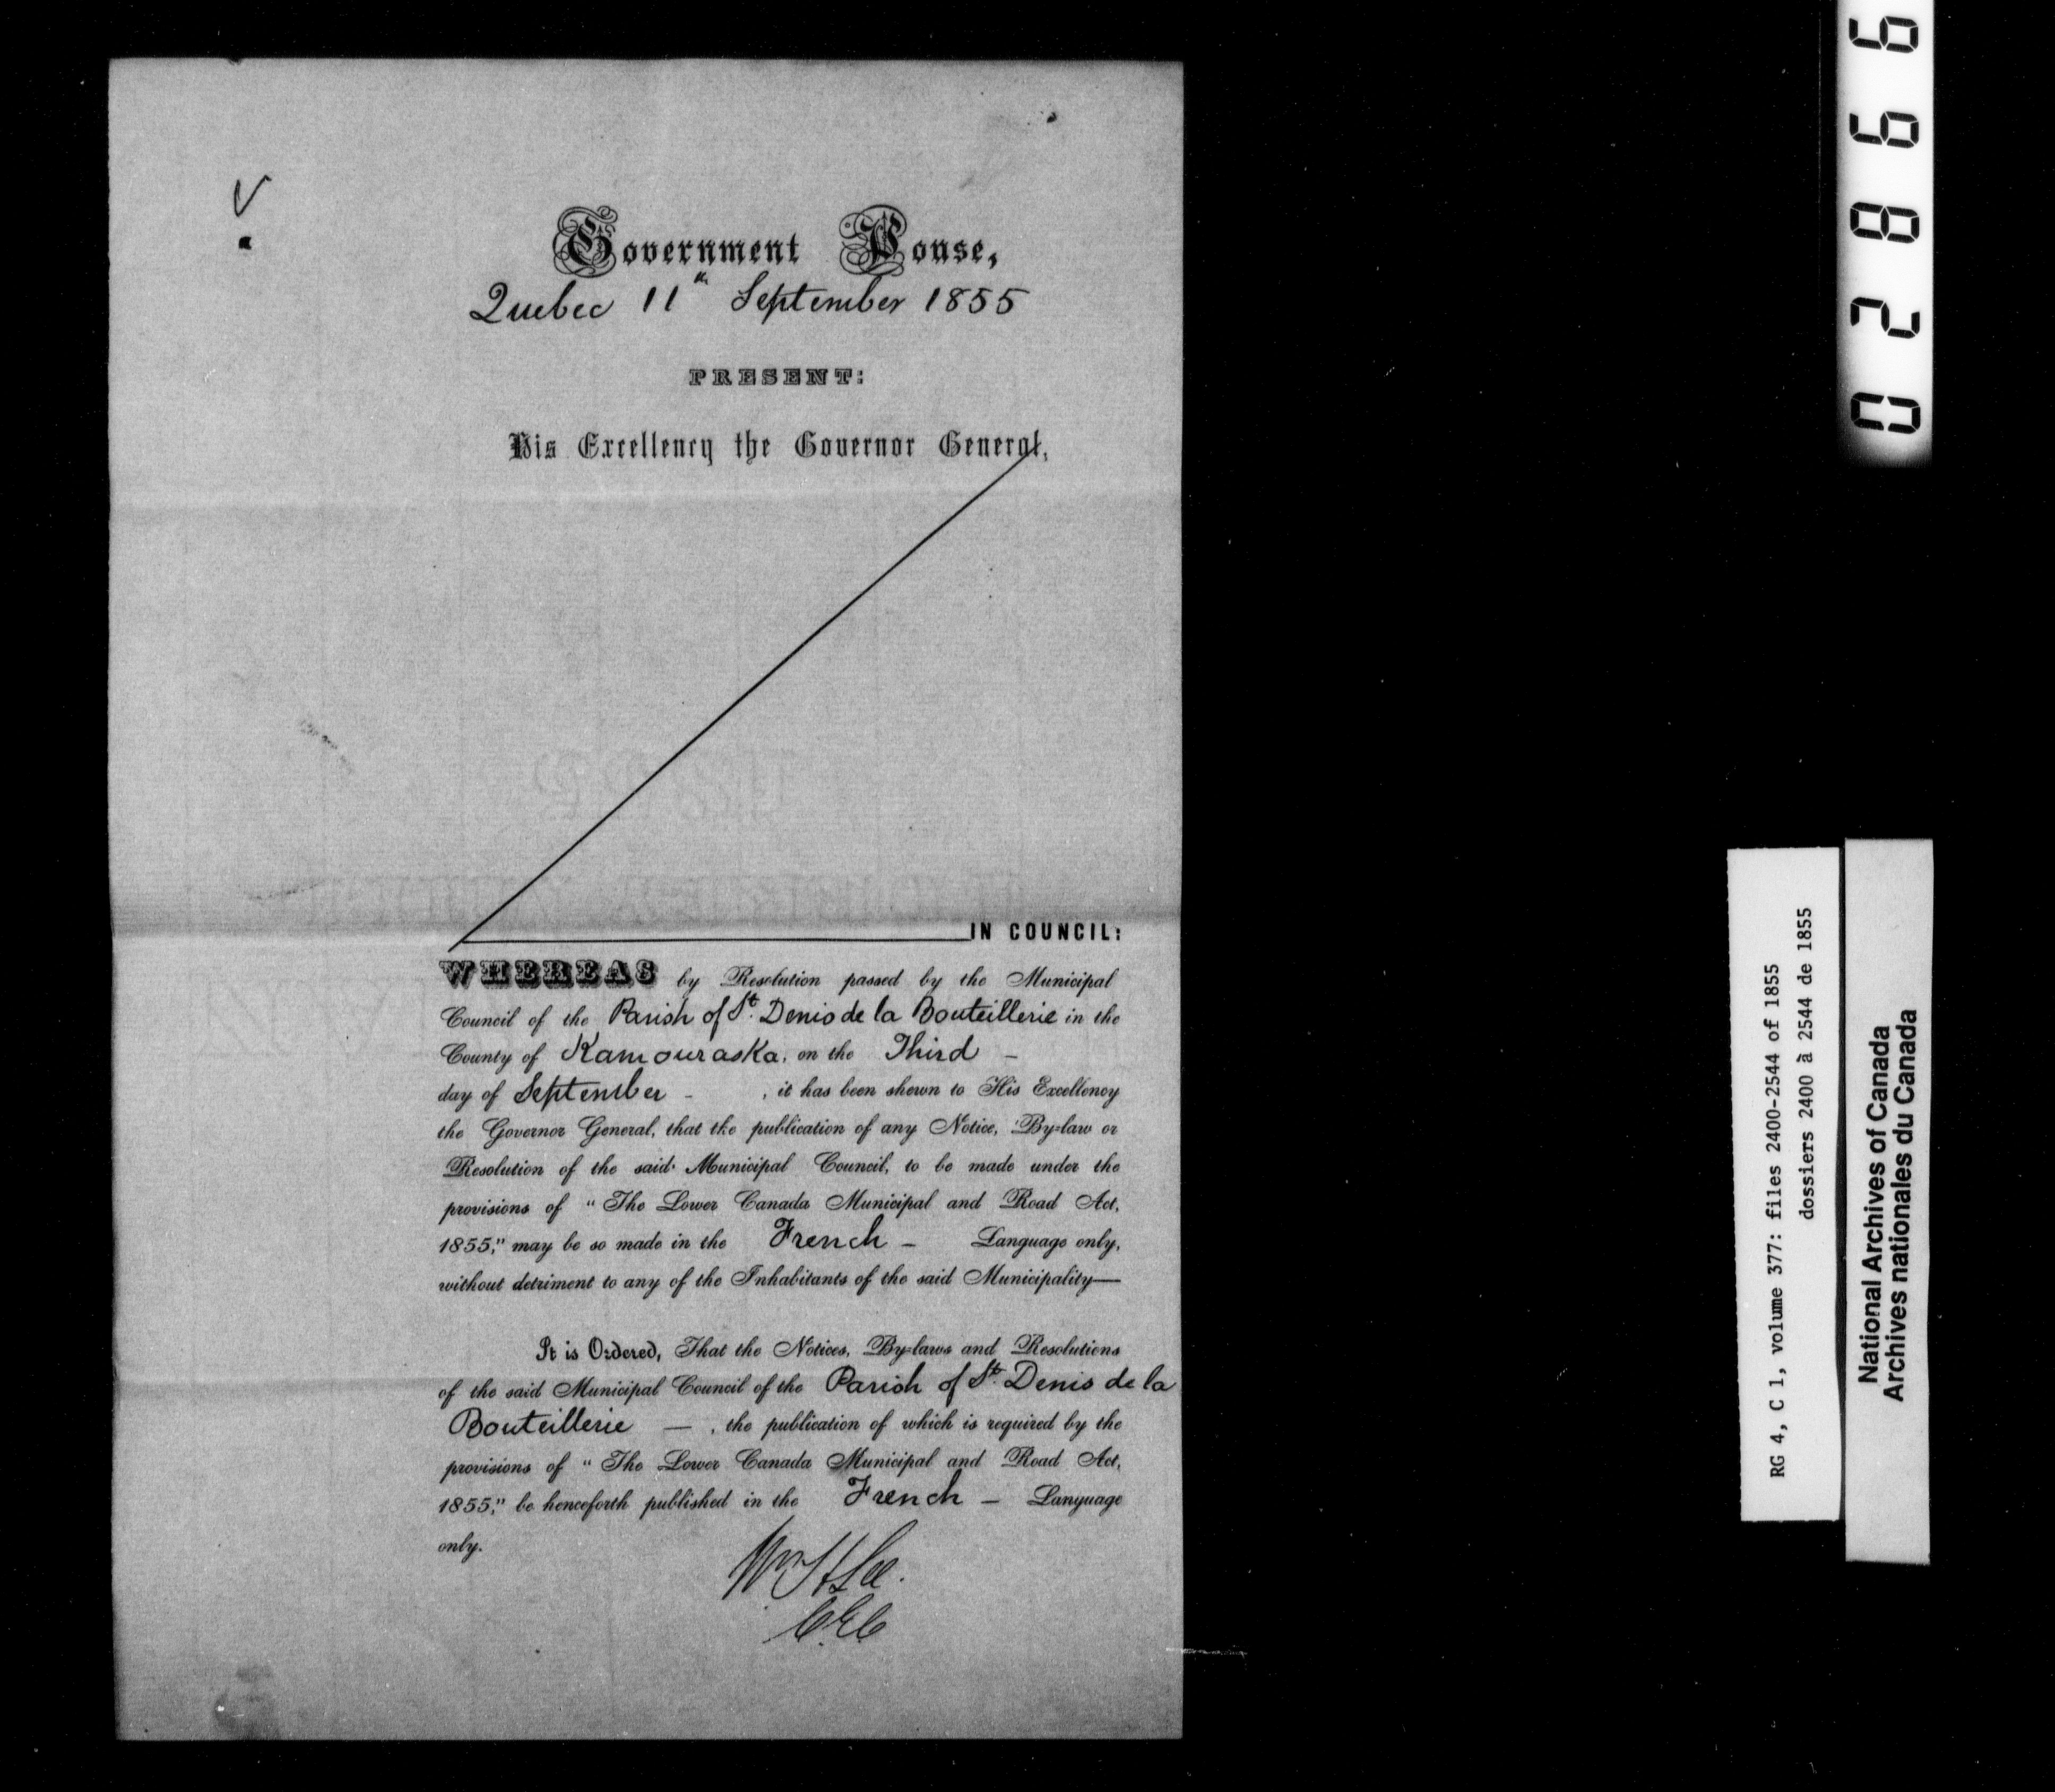 Government House,
Quebec 11th September 1855
PRESENT:
His Excellency the Governor General,
IN COUNCIL:
WHEREAS by Resolution passed by the Municipal
Council of the Parish of St. Denis de la Bouteillerie in the
County of Kamouraska, on the Third –
day of September – , it has been shewn to His Excellency
the Governor General, that the publication of any Notice, By-law or
Resolution of the said Municipal Council, to be made under the
provisions of "The Lower Canada Municipal and Road Act,
1855," may be so made in the French – Language only,
without detriment to any of the Inhabitants of the said Municipality—
It is Ordered, That the Notices, By-laws and Resolutions
of the said Municipal Council of the Parish of St. Denis de la
Bouteillerie — , the publication of which is required by the
provisions of "The Lower Canada Municipal and Road Act,
1855," be henceforth published in the French – Language
only.
Wm H Lee.
C.E.C
02866
RG 4, C 1, volume 377: files 2400-2544 of 1855
dossiers 2400 à 2544 de 1855
National Archives of Canada
Archives nationales du Canada